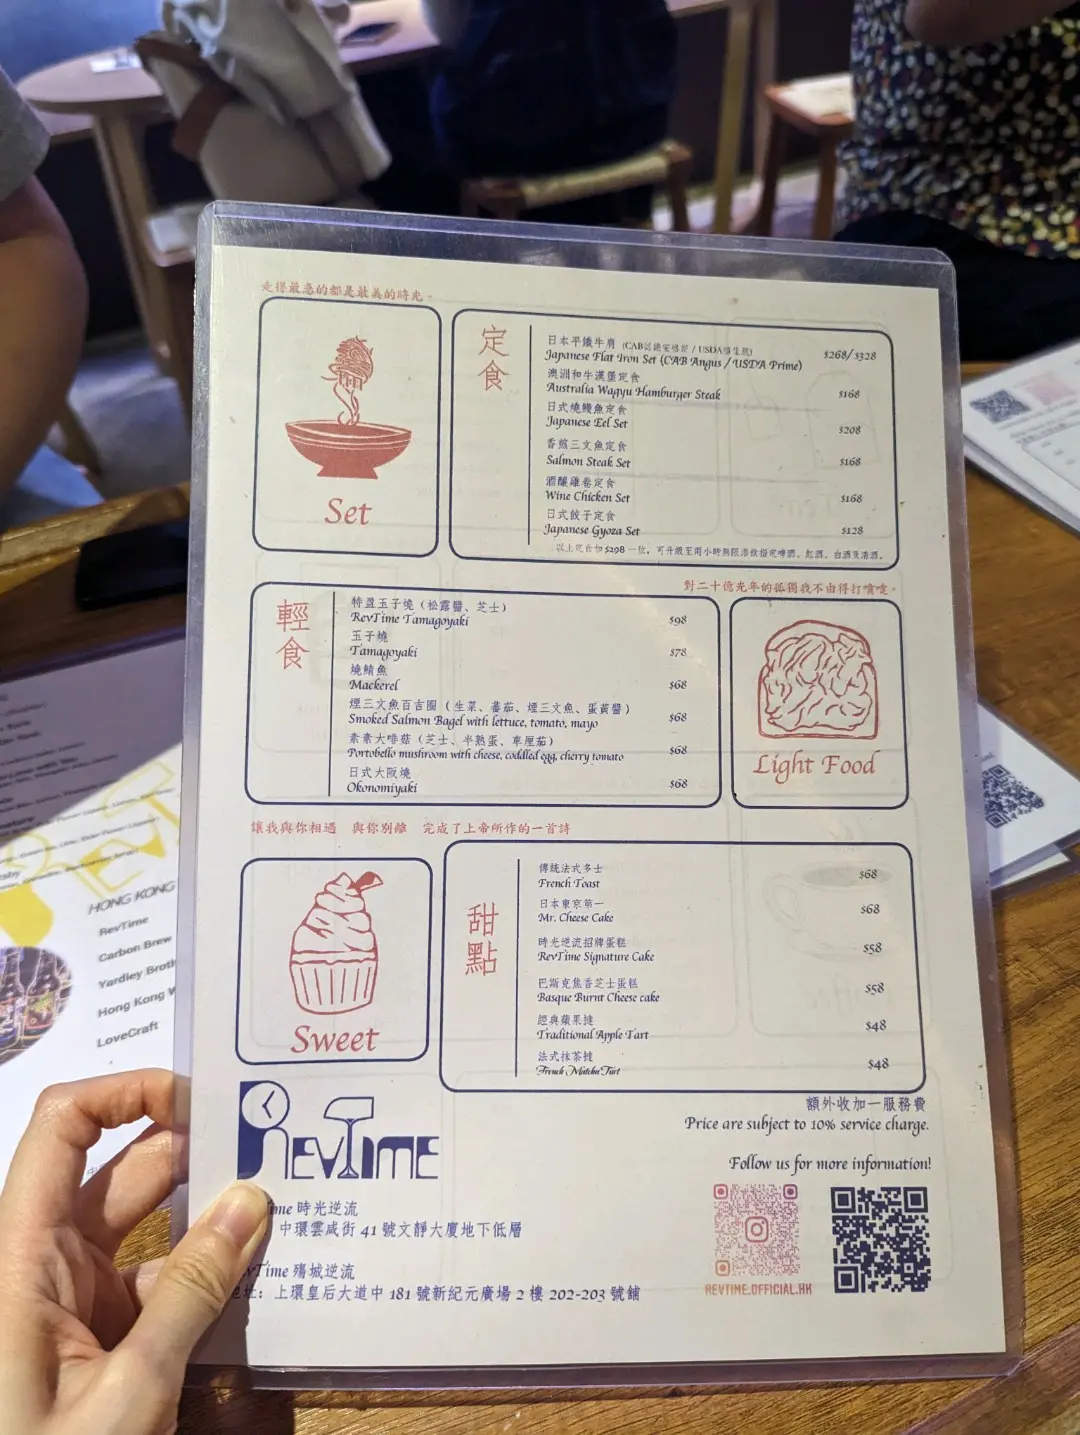 走得最急的都是最美的時光。
Set
定食
日本平鐵牛肩 (CAB認證安格斯 / USDA極佳級)
Japanese Flat Iron Set (CAB Angus / USDA Prime)
$268/$328
澳洲和牛漢堡定食
Australia Wagyu Hamburger Steak
$168
日式燒鰻魚定食
Japanese Eel Set
$208
香煎三文魚定食
Salmon Steak Set
$168
酒釀雞卷定食
Wine Chicken Set
$168
日式餃子定食
Japanese Gyoza Set
$128
以上定食加 $298 一位，可升級至兩小時無限添飲指定啤酒、紅酒、白酒及清酒。
對二十億光年的孤獨我不由得打噴嚏。
輕食
特盈玉子燒 (松露醬、芝士)
RevTime Tamagoyaki
$98
玉子燒
Tamagoyaki
$78
燒鯖魚
Mackerel
$68
煙三文魚百吉圈 (生菜、蕃茄、煙三文魚、蛋黃醬)
Smoked Salmon Bagel with lettuce, tomato, mayo
$68
素素大啡菇 (芝士、半熟蛋、車厘茄)
Portobello mushroom with cheese, coddled egg, cherry tomato
$68
日式大阪燒
Okonomiyaki
$68
Light Food
讓我與你相遇 與你別離 完成了上帝所作的一首詩
Sweet
甜點
傳統法式多士
French Toast
$68
日本東京第一
Mr. Cheese Cake
$68
時光逆流招牌蛋糕
RevTime Signature Cake
$58
巴斯克焦香芝士蛋糕
Basque Burnt Cheese cake
$58
經典蘋果撻
Traditional Apple Tart
$48
法式抹茶撻
French Matcha Tart
$48
額外收加一服務費
Price are subject to 10% service charge.
REVTIME
Follow us for more information!
REVTIME.OFFICIAL.HK
Time 時光逆流
中環雲咸街 41 號文靜大廈地下低層
Time 殤城逆流
址: 上環皇后大道中 181 號新紀元廣場 2 樓 202-203 號舖
HONG KONG
RevTime
Carbon Brew
Yardley Broth
Hong Kong W
LoveCraft